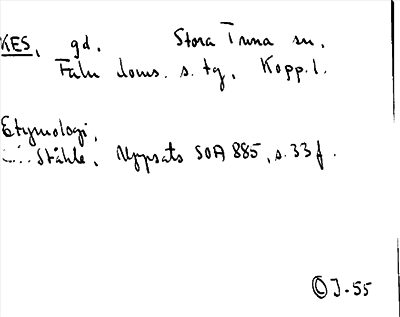 KES, gd. Stora Tuna sn,
Falu doms. s. tg, Kopp. l.
Etymologi,
Ståhle, Uppsats SOA 885, s. 33 f.
J-55